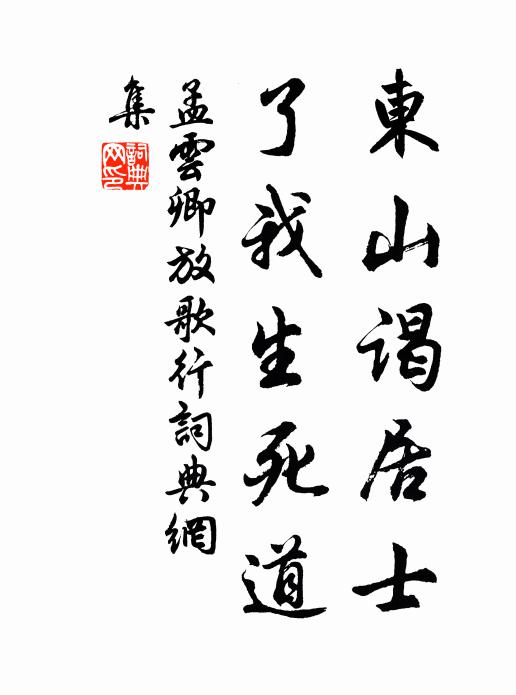 東山謁居士
了我生死道
孟雲卿放歌行詞典網
集
詞典
网印